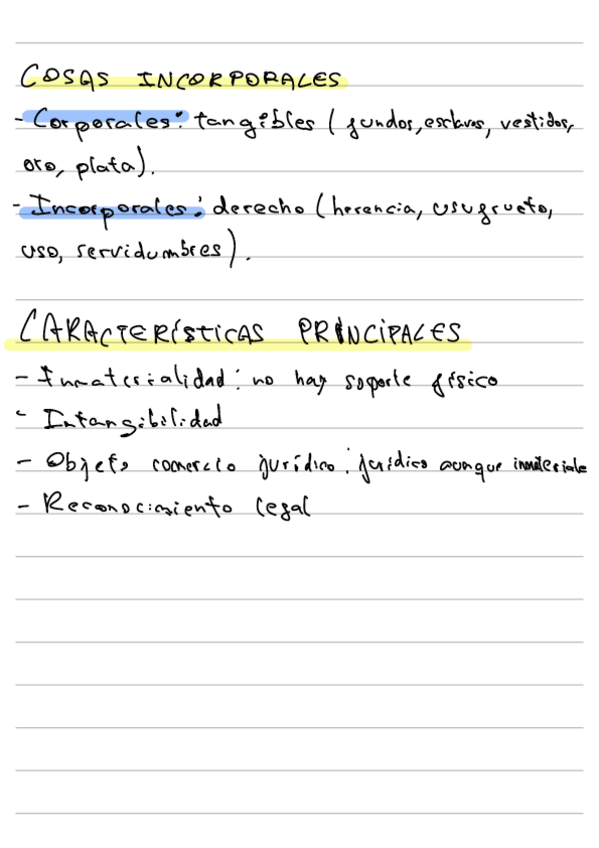 COSAS INCORPORALES
- Corporales: tangibles (fundos, esclavos, vestidos,
oro, plata).
- Incorporales: derecho (herencia, usufructo,
uso, servidumbres).
CARACTERÍSTICAS PRINCIPALES
- Inmaterialidad: no hay soporte físico
- Intangibilidad
- Objeto comercio jurídico: jurídico aunque inmateriale
- Reconocimiento legal